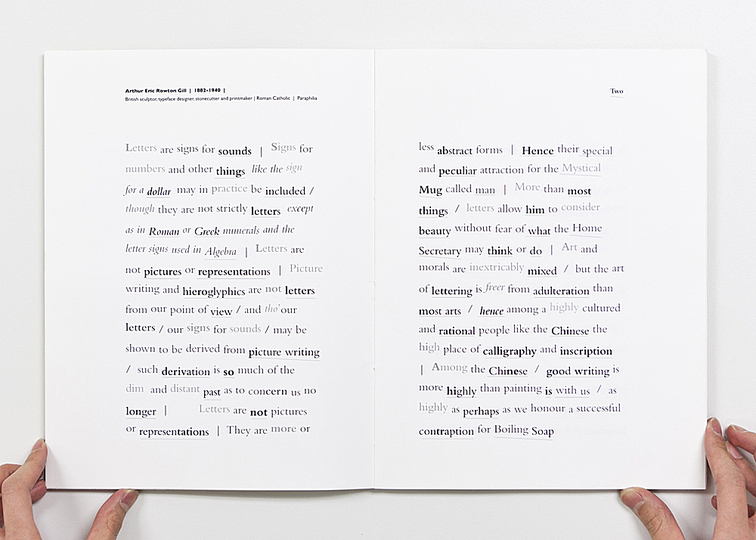 Arthur Eric Rowton Gill | 1882–1940 |
British sculptor, typeface designer, stonecutter and printmaker | Roman Catholic | Paraphilia
Letters are signs for sounds | Signs for
numbers and other things like the sign
for a dollar may in practice be included /
though they are not strictly letters except
as in Roman or Greek numerals and the
letter signs used in Algebra | Letters are
not pictures or representations | Picture
writing and hieroglyphics are not letters
from our point of view / and tho' our
letters / our signs for sounds / may be
shown to be derived from picture writing
/ such derivation is so much of the
dim and distant past as to concern us no
longer | Letters are not pictures
or representations | They are more or
Two
less abstract forms | Hence their special
and peculiar attraction for the Mystical
Mug called man | More than most
things / letters allow him to consider
beauty without fear of what the Home
Secretary may think or do | Art and
morals are inextricably mixed / but the art
of lettering is freer from adulteration than
most arts / hence among a highly cultured
and rational people like the Chinese the
high place of calligraphy and inscription
| Among the Chinese / good writing is
more highly than painting is with us / as
highly as perhaps as we honour a successful
contraption for Boiling Soap